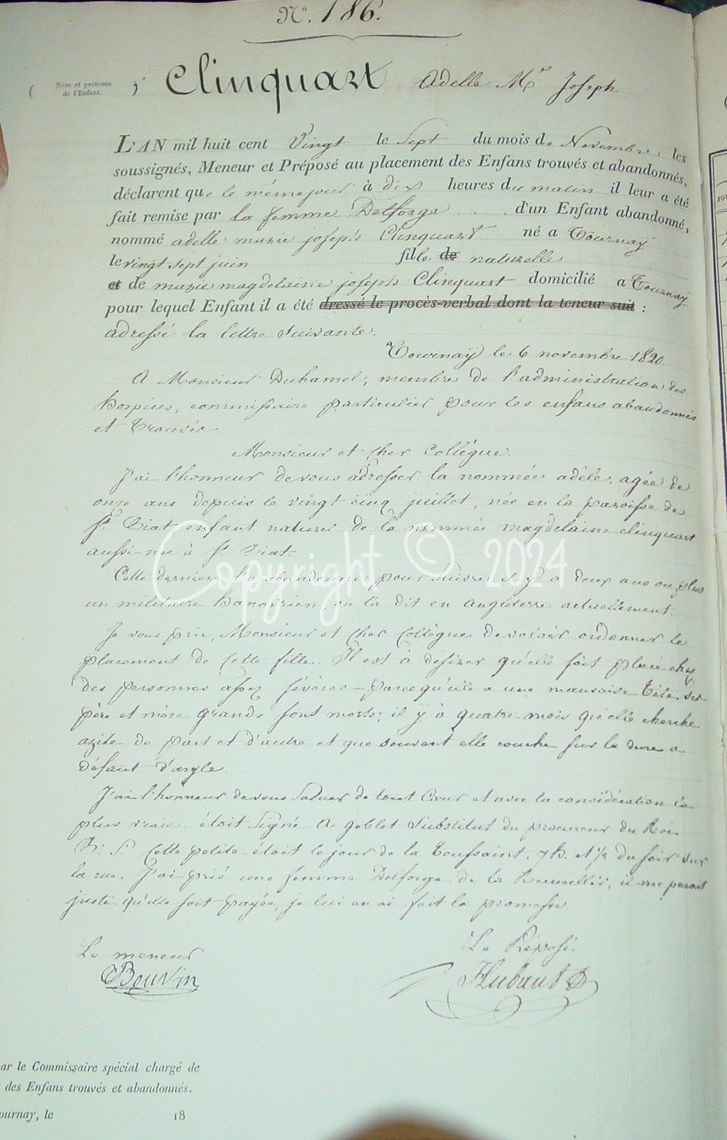 N°. 186.
( Nom et prénoms de l'Enfant. ) Clinquart Adelle Mie Joseph
L'AN mil huit cent Vingt le Sept du mois de Novembre les
soussignés, Meneur et Préposé au placement des Enfans trouvés et abandonnés,
déclarent que le même jour à dix heures du matin il leur a été
fait remise par la femme Delforge d'un Enfant abandonné,
nommé adelle marie joseph Clinquart né a Tournay
le vingt sept juin fille de naturelle
et de marie magdelaine joseph Clinquart domicilié a Tournay
pour lequel Enfant il a été dressé le procès-verbal dont la teneur suit :
adressé la lettre suivante.
Tournay le 6 novembre 1820
A Monsieur Duhamel, membre de l'administration des
hospices, commissaire particulier pour les enfans abandonnés
et trouvés.
Monsieur et cher Collégue.
J'ai l'honneur de vous adresser la nommée adèle, agée de
onze ans depuis le vingt cinq juillet, née en la paroisse de
St. Piat enfant naturel de la nommée magdelaine clinquart
aussi née à St. Piat.
Cette dernière l'a abandonnée pour suivre il y a deux ans ou plus
un militaire hanovrien, on la dit en angleterre actuellement.
Je vous prie, Monsieur et cher Collégue de vouloir ordonner le
placement de cette fille. Il est à désirer qu'elle soit placée chez
des personnes assez sévères parce qu'elle a une mauvaise tête. ses
père et mère grands sont morts; il y à quatre mois qu'elle cherche
azile de part et d'autre et que souvent elle couche sur la dure a
défaut d'azyle.
J'ai l'honneur de vous saluer de tout Cœur et avec la considération la
plus vraie. étoit signé A. goblet Substitut du procureur du Roi.
P. S. Cette petite étoit le jour de la Toussaint, 7 h. et 1/2 du soir sur
la rue. J'ai prié une femme Delforge de la il me parait
juste qu'elle soit payée, je lui en ai fait la promesse.
Le meneur Le Préposé
Beuvin Hubault
Copyright © 2024
ar le Commissaire spécial chargé de
des Enfans trouvés et abandonnés.
ournay, le 18